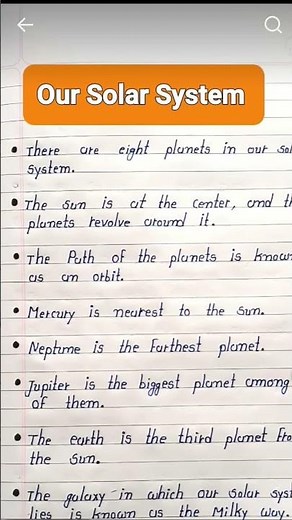 Our Solar System
There are eight planets in our
System.
The Sun is at the center, and
planets revolve around it.
The Path of the planets is
as an orbit.
Mercury is nearest to the Sun.
Neptune is the Farthest planet.
Jupiter is the biggest planet among
of them.
The earth is the third planet
the Sun.
The galaxy in which our Solar
lies is known as the Milky Way.